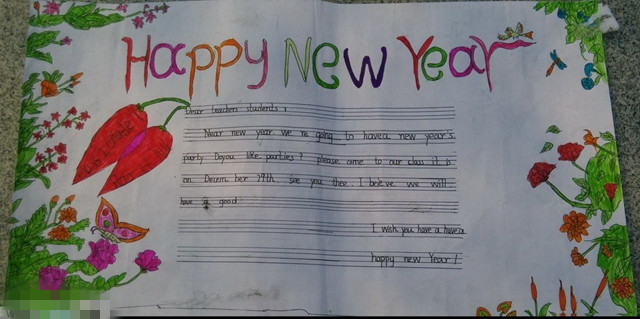 Happy New Year
Dear teachers students :
Near new year we re going to havea new year's
party. Doyou like parties? please come to our class it is
on Decem ber 29th see you thee. I believe we will
have a good
I wish you have a havea
happy new Year!